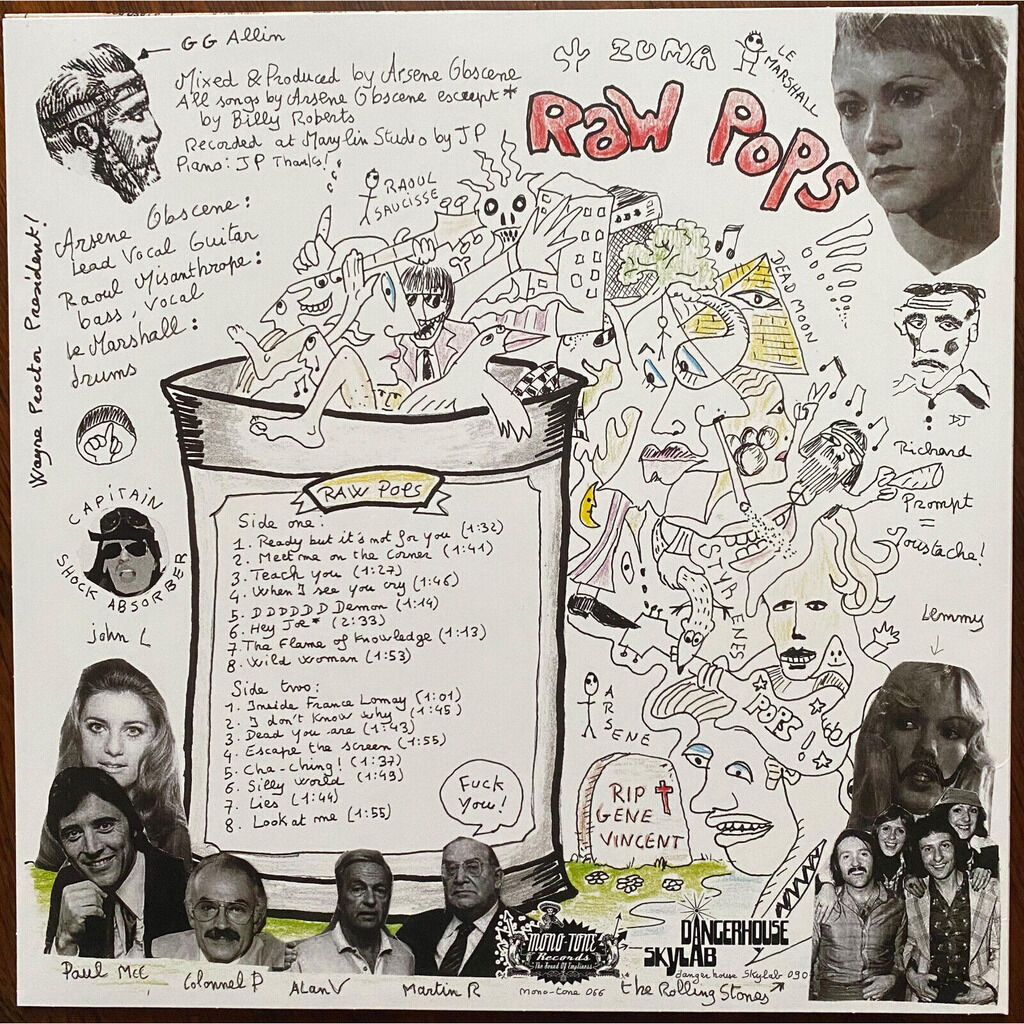 GG Allin
Mixed & Produced by Arsene Obscene
All songs by Arsene Obscene escerpt*
by Billy Roberts
Recorded at Marylin Studio by JP
Piano: JP Thanks!
ZUMA
LE MARSHALL
RAW POPS
RAOUL
SAUCISSE
Wayne Proctor President!
Arsene Obscene:
Lead Vocal Guitar
Raoul Misanthrope:
bass, vocal
le Marshall:
drums
DEAD MOON
DJ
Richard
Prompt
=
Joustache!
CAPITAIN
SHOCK ABSORBER
john L
RAW POPS
Side one:
1. Ready but it's not for you (1:32)
2. Meet me on the Corner (1:41)
3. Teach you (1:27)
4. When I see you cry (1:46)
5. DDDDDD Demon (1:14)
6. Hey Joe* (2:33)
7. The Flame of Knowledge (1:13)
8. Wild Woman (1:53)
Side two:
1. Inside France Lomay (1:01)
2. I don't know why (1:45)
3. Dead you are (1:43)
4. Escape the screen (1:55)
5. Cha-Ching! (1:37)
6. Silly World (1:43)
7. Lies (1:44)
8. Look at me (1:55)
Fuck
You!
STYRENES
ARSENE
POPS!
66
Lemmy
RIP
GENE
VINCENT
Paul McE
Colonnel P
Alan V
Martin R
MONO-TONE
Records
The Sound Of Emptiness
Mono-tone 066
DANGERHOUSE
SKYLAB
danger house Skylab 090
the Rolling Stones